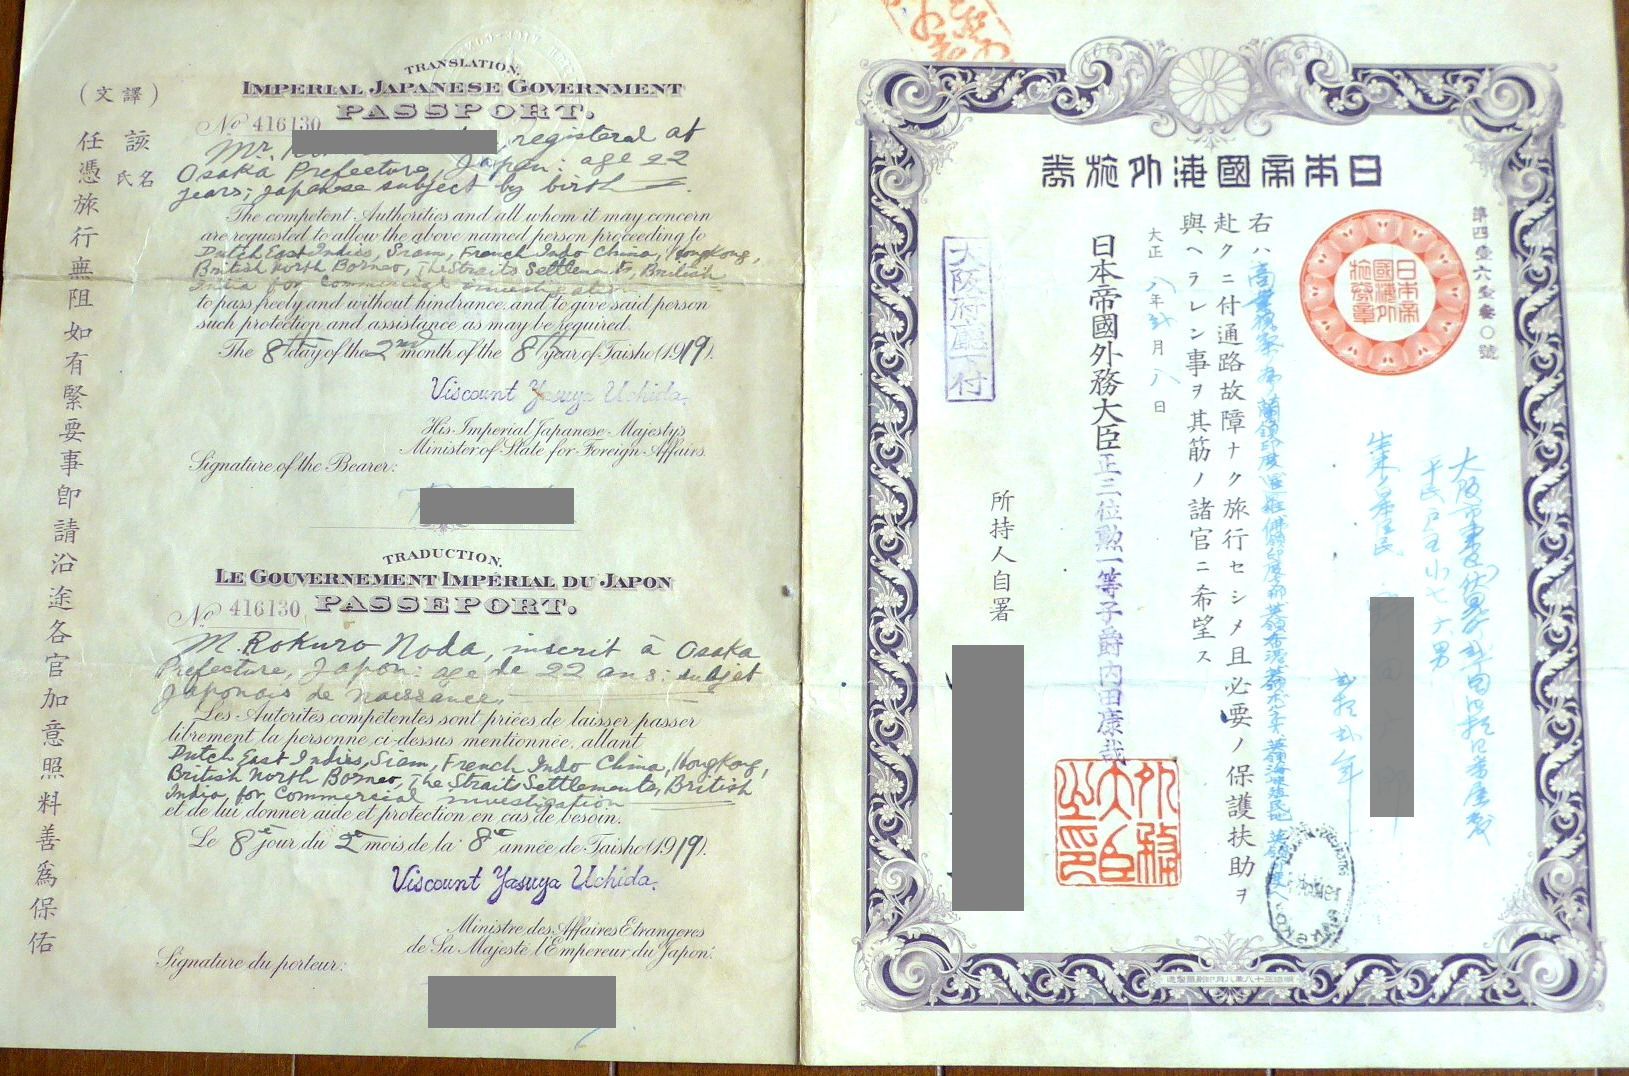 TRANSLATION.
IMPERIAL JAPANESE GOVERNMENT
PASSPORT.
No 416130
Mr. registered at
Osaka Prefecture, Japan: age 22
years; Japanese subject by birth
The competent Authorities and all whom it may concern
are requested to allow the above named person proceeding to
Dutch East Indies, Siam, French Indo China, Hongkong,
British North Borneo, The Straits Settlements, British
India for Commercial investigation
to pass freely and without hindrance and to give said person
such protection and assistance as may be required.
The 8th day of the 2nd month of the 8th year of Taisho (1919).
Viscount Yasuya Uchida.
His Imperial Japanese Majesty's
Minister of State for Foreign Affairs.
Signature of the Bearer:
TRADUCTION.
LE GOUVERNEMENT IMPERIAL DU JAPON
PASSEPORT.
No 416130
M. Rokuro Noda, inscrit à Osaka
Prefecture, Japon: age de 22 ans: sujet
Japonais de naissance,
Les Autorités compétentes sont priées de laisser passer
librement la personne ci-dessus mentionnée, allant
Dutch East Indies, Siam, French Indo China, Hongkong,
British North Borneo, The Straits Settlements, British
India, for Commercial investigation
et de lui donner aide et protection en cas de besoin.
Le 8e jour du 2e mois de la 8e année de Taisho (1919).
Viscount Yasuya Uchida.
Ministre des Affaires Etrangeres
de Sa Majesté l'Empereur du Japon.
Signature du porteur:
(譯文)
該氏名
任憑旅行無阻如有緊要事卽請沿途各官加意照料善爲保佑
日本帝國海外旅券
第四壹六壹參〇號
日本帝國海外旅券章
大阪市
平民戶主
六男
右ハ
赴クニ付通路故障ナク旅行セシメ且必要ノ保護扶助ヲ
與ヘラレン事ヲ其筋ノ諸官ニ希望ス
大正八年貳月八日
日本帝國外務大臣正三位勲一等子爵內田康哉
外務大臣之印
所持人自署
大阪府廳下付